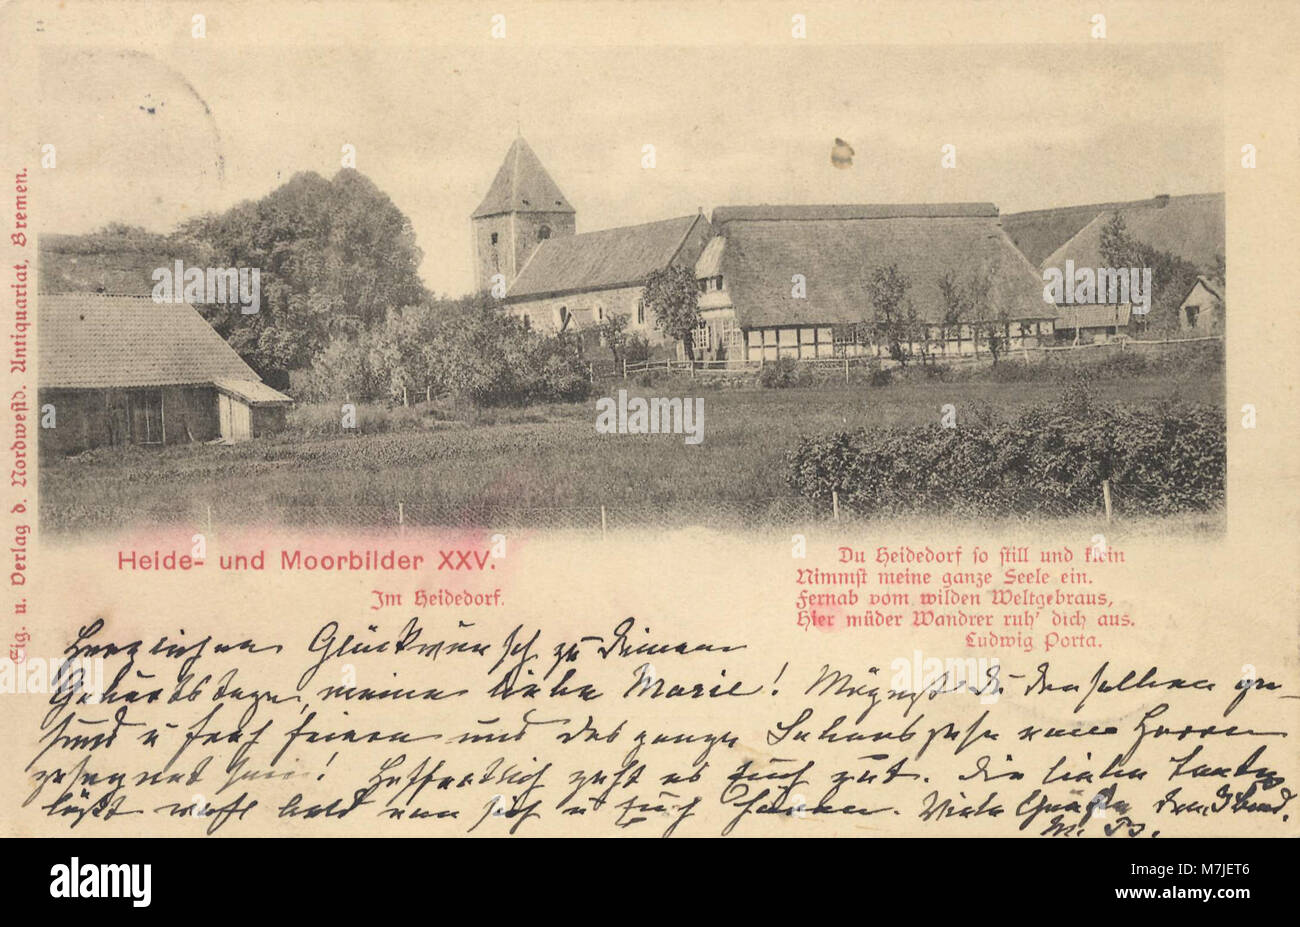 Eig. u. Verlag d. Nordwestd. Antiquariat, Bremen.
Heide- und Moorbilder XXV.
Im Heidedorf.
Du Heidedorf so still und klein
Nimmst meine ganze Seele ein.
Fernab vom wilden Weltgebraus,
Hier müder Wandrer ruh' dich aus.
Ludwig Porta.
Herzlichen Glückwunsch zu Deinem
Geburtstage, meine liebe Marie! Mögest Du denselben ge-
sund u froh feiern und das ganze Lebensjahr vom Herrn
gesegnet sein! Hoffentlich geht es Euch gut. Die liebe Tante
läßt wohl bald von sich u Euch hören. Viele Grüße
M. B.
alamy
Image ID: M7JET6
www.alamy.com